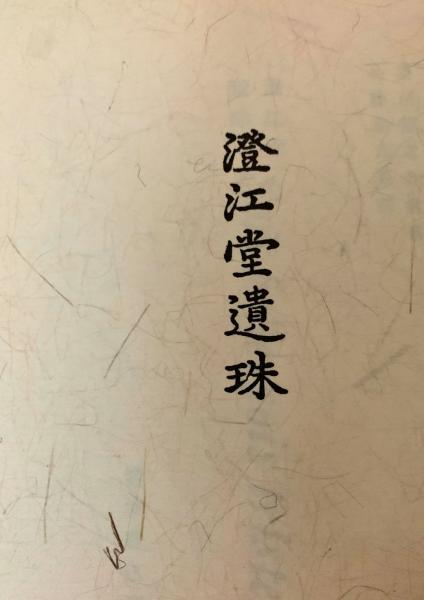 澄江堂遺珠